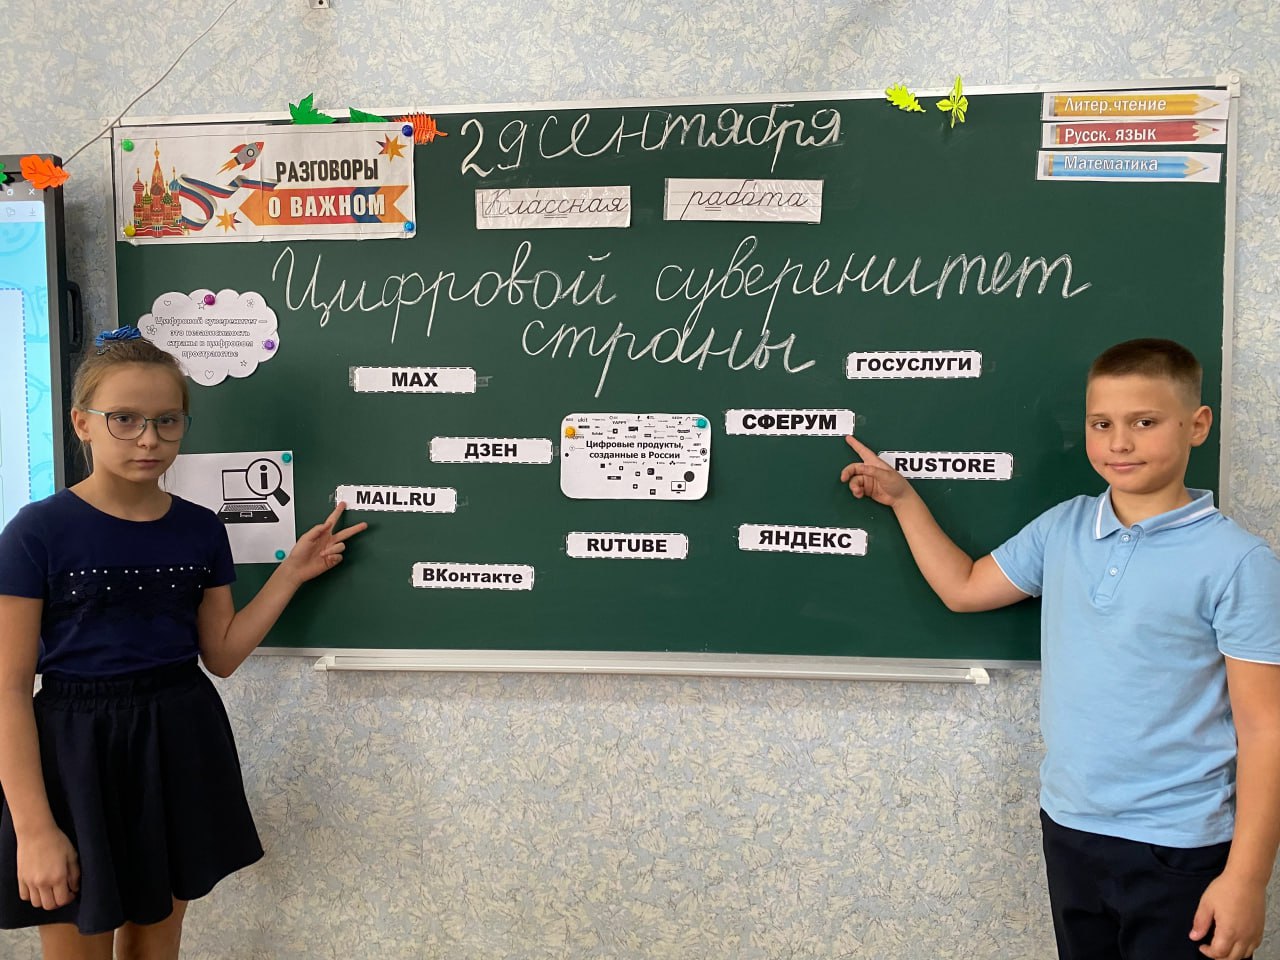 29 сентября
РАЗГОВОРЫ
О ВАЖНОМ
Классная работа
Литер. чтение
Русск. язык
Математика
Цифровой суверенитет
страны
Цифровой суверенитет —
это независимость
страны в цифровом
пространстве
MAX
ГОСУСЛУГИ
ДЗЕН
СФЕРУМ
Цифровые продукты,
созданные в России
RUSTORE
MAIL.RU
RUTUBE
ЯНДЕКС
ВКонтакте